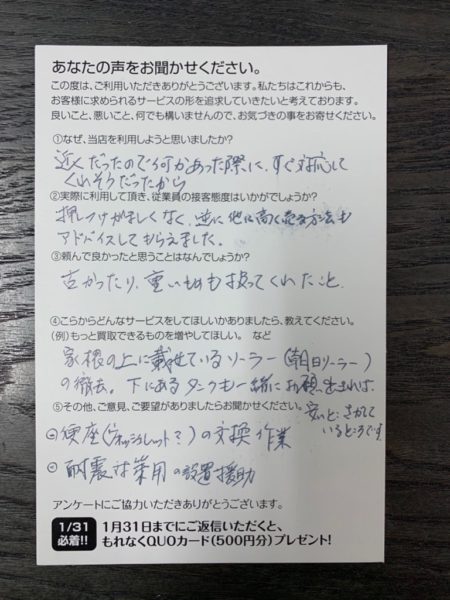 あなたの声をお聞かせください。
この度は、ご利用いただきありがとうございます。私たちはこれからも、
お客様に求められるサービスの形を追求していきたいと考えております。
良いこと、悪いこと、何でも構いませんので、お気づきの事をお寄せください。
①なぜ、当店を利用しようと思いましたか?
近くだったので何かあった際に、すぐ対応して
くれそうだったから
②実際に利用して頂き、従業員の接客態度はいかがでしょうか?
押しつけがましくなく、逆に他に高く売る方法も
アドバイスしてもらえました。
③頼んで良かったと思うことはなんでしょうか?
古かったり、重いものも扱ってくれたこと、
④こらからどんなサービスをしてほしいかありましたら、教えてください。
(例)もっと買取できるものを増やしてほしい。 など
家根の上に載せているソーラー(朝日ソーラー)
の撤去。下にあるタンクも一緒にお願い出来れば、
⑤その他、ご意見、ご要望がありましたらお聞かせください。
安いと、さがして
いるところです
便座(ウォッシュレット?)の交換作業
耐震 用の設置援助
アンケートにご協力いただきありがとうございます。
1/31
必着!!
1月31日までにご返信いただくと、
もれなくQUOカード(500円分)プレゼント!